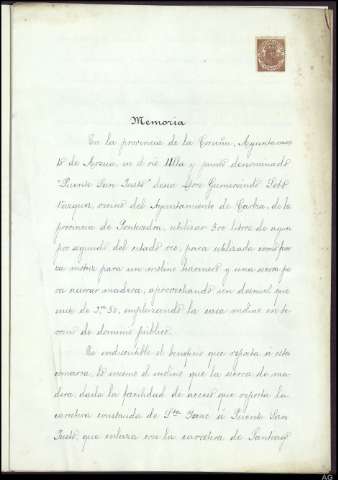 Memoria
En la provincia de la Coruña, Ayuntamien-
to de Arzua, en el río Ulla y punto denominado
"Puente San Justo" desea Don Gumersindo
Vazquez, vecino del Ayuntamiento de Carbia, de la
provincia de Pontevedra, utilizar 300 litros de agua
por segundo del citado río, para utilizarla como fuer-
za motriz para un molino harinero y una sierra pa-
ra aserrar madera, aprovechando un desnivel que
mide de 1,m 50, emplazando la casa molino en te-
rreno de dominio público.
Es indiscutible el beneficio que reporta a esta
comarca, lo mismo el molino que la sierra de ma-
dera, dada la facilidad de acceso que reporta la
carretera construida de Pte a Puente San
Justo, que enlaza con la carretera de Santiago
AG